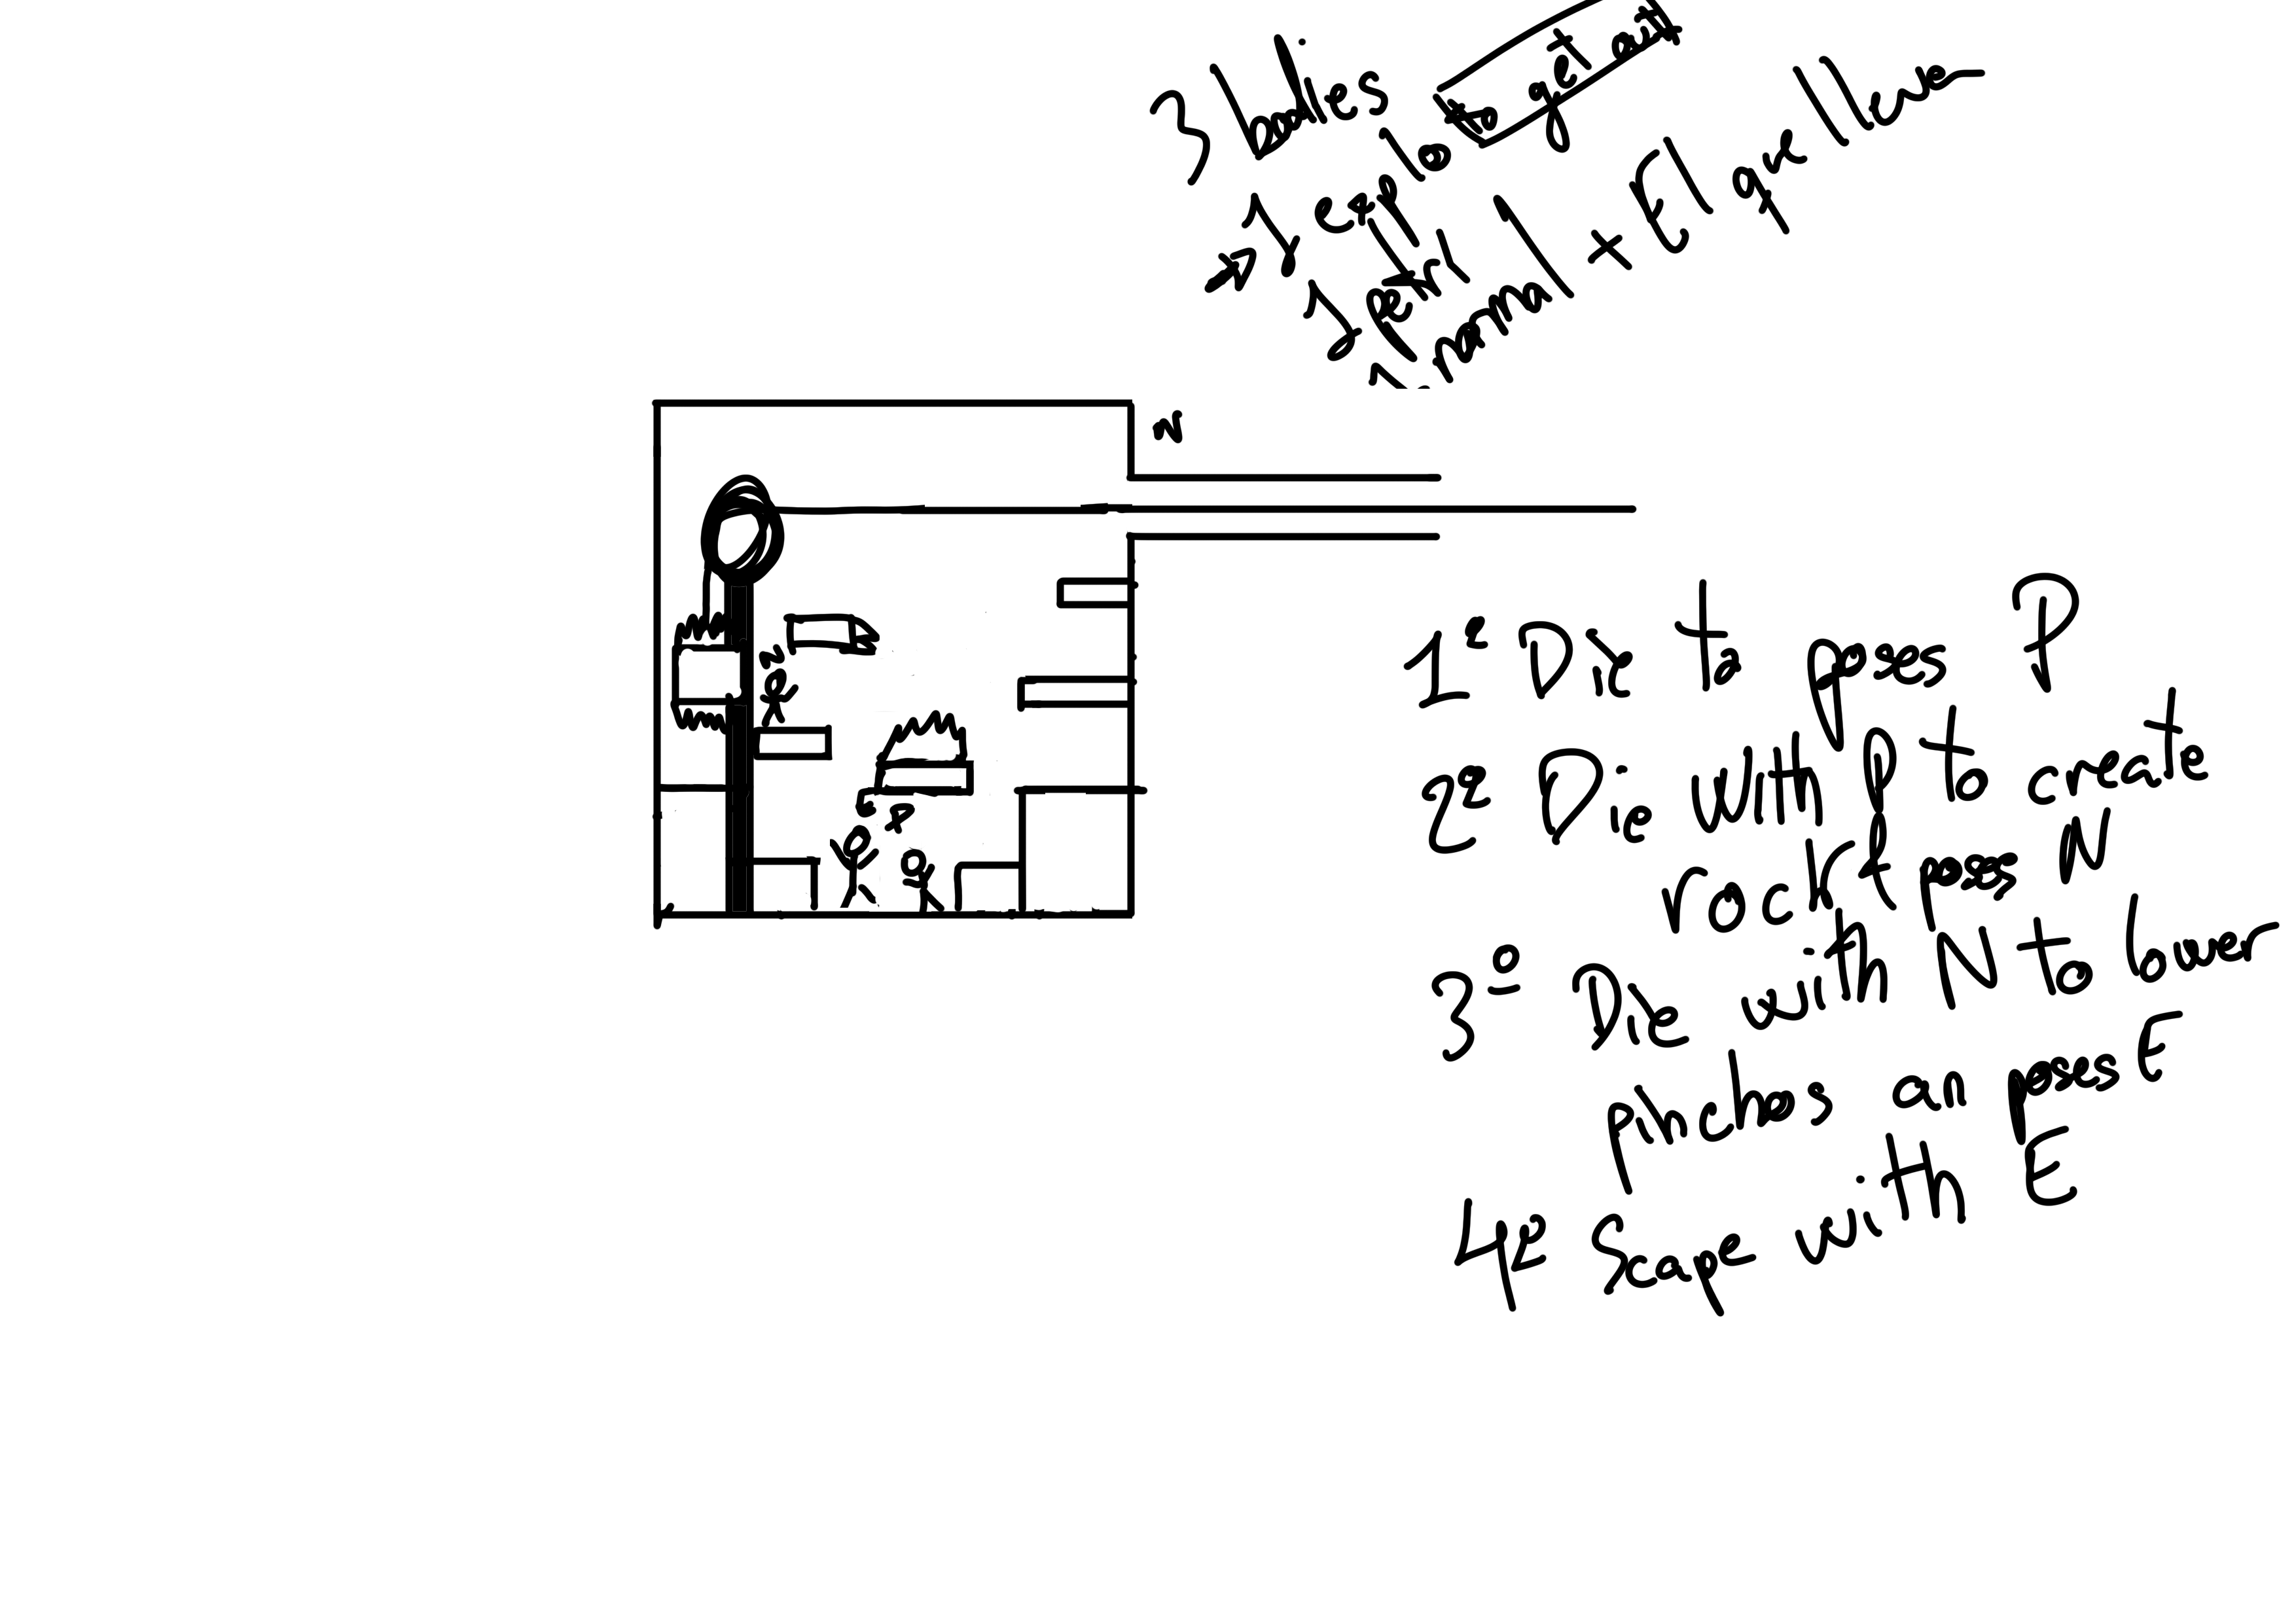 3 bodies
→ 1 explo to get out
1 petri
1 normal + El que lleva
N
N
E P
1º Die to poses P
2º Die with P to create
rock + poses N
3º Die with N to lower
pinchos an poses E
4º Scape with E